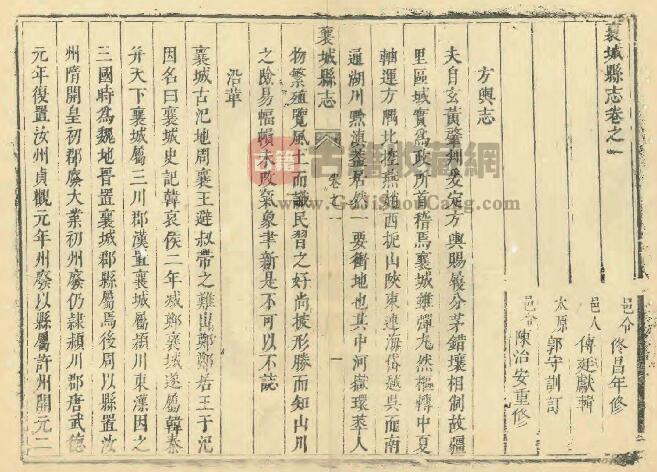 襄城縣志卷之一
邑令佟昌年修
邑人傅廷獻輯
太原郭守訓訂
邑令陳治安重修
方輿志
夫自玄黃肇判爰定方輿賜履分茅錯壤相制故疆
里區域實爲政所首稽焉襄城雖彈丸然樞轉中夏
轉運方隅北控燕趙西扼山陝東連海岱越吳而南
逼湖川黔滇葢居然一要衝地也其中河嶽環萃人
襄城縣志
卷之
一
物繁殖覽風土而識民習之好尚披形勝而知山川
之險易幅幀大政氣象聿新是不可以不誌
沿革
襄城古氾地周襄王避叔帶之難出鄭鄭若王于氾
因名曰襄城史記韓哀侯二年滅鄭襄城遂屬韓秦
并天下襄城屬三川郡漢置襄城屬潁川東漢因之
三國時爲魏地晉置襄城郡縣屬焉後周以縣置汝
州隋開皇初郡廢大業初州廢仍隷潁川郡唐武德
元年復置汝州貞觀元年州廢以縣屬許州開元二
古籍
古籍收藏網
www.GuJiShouCang.com